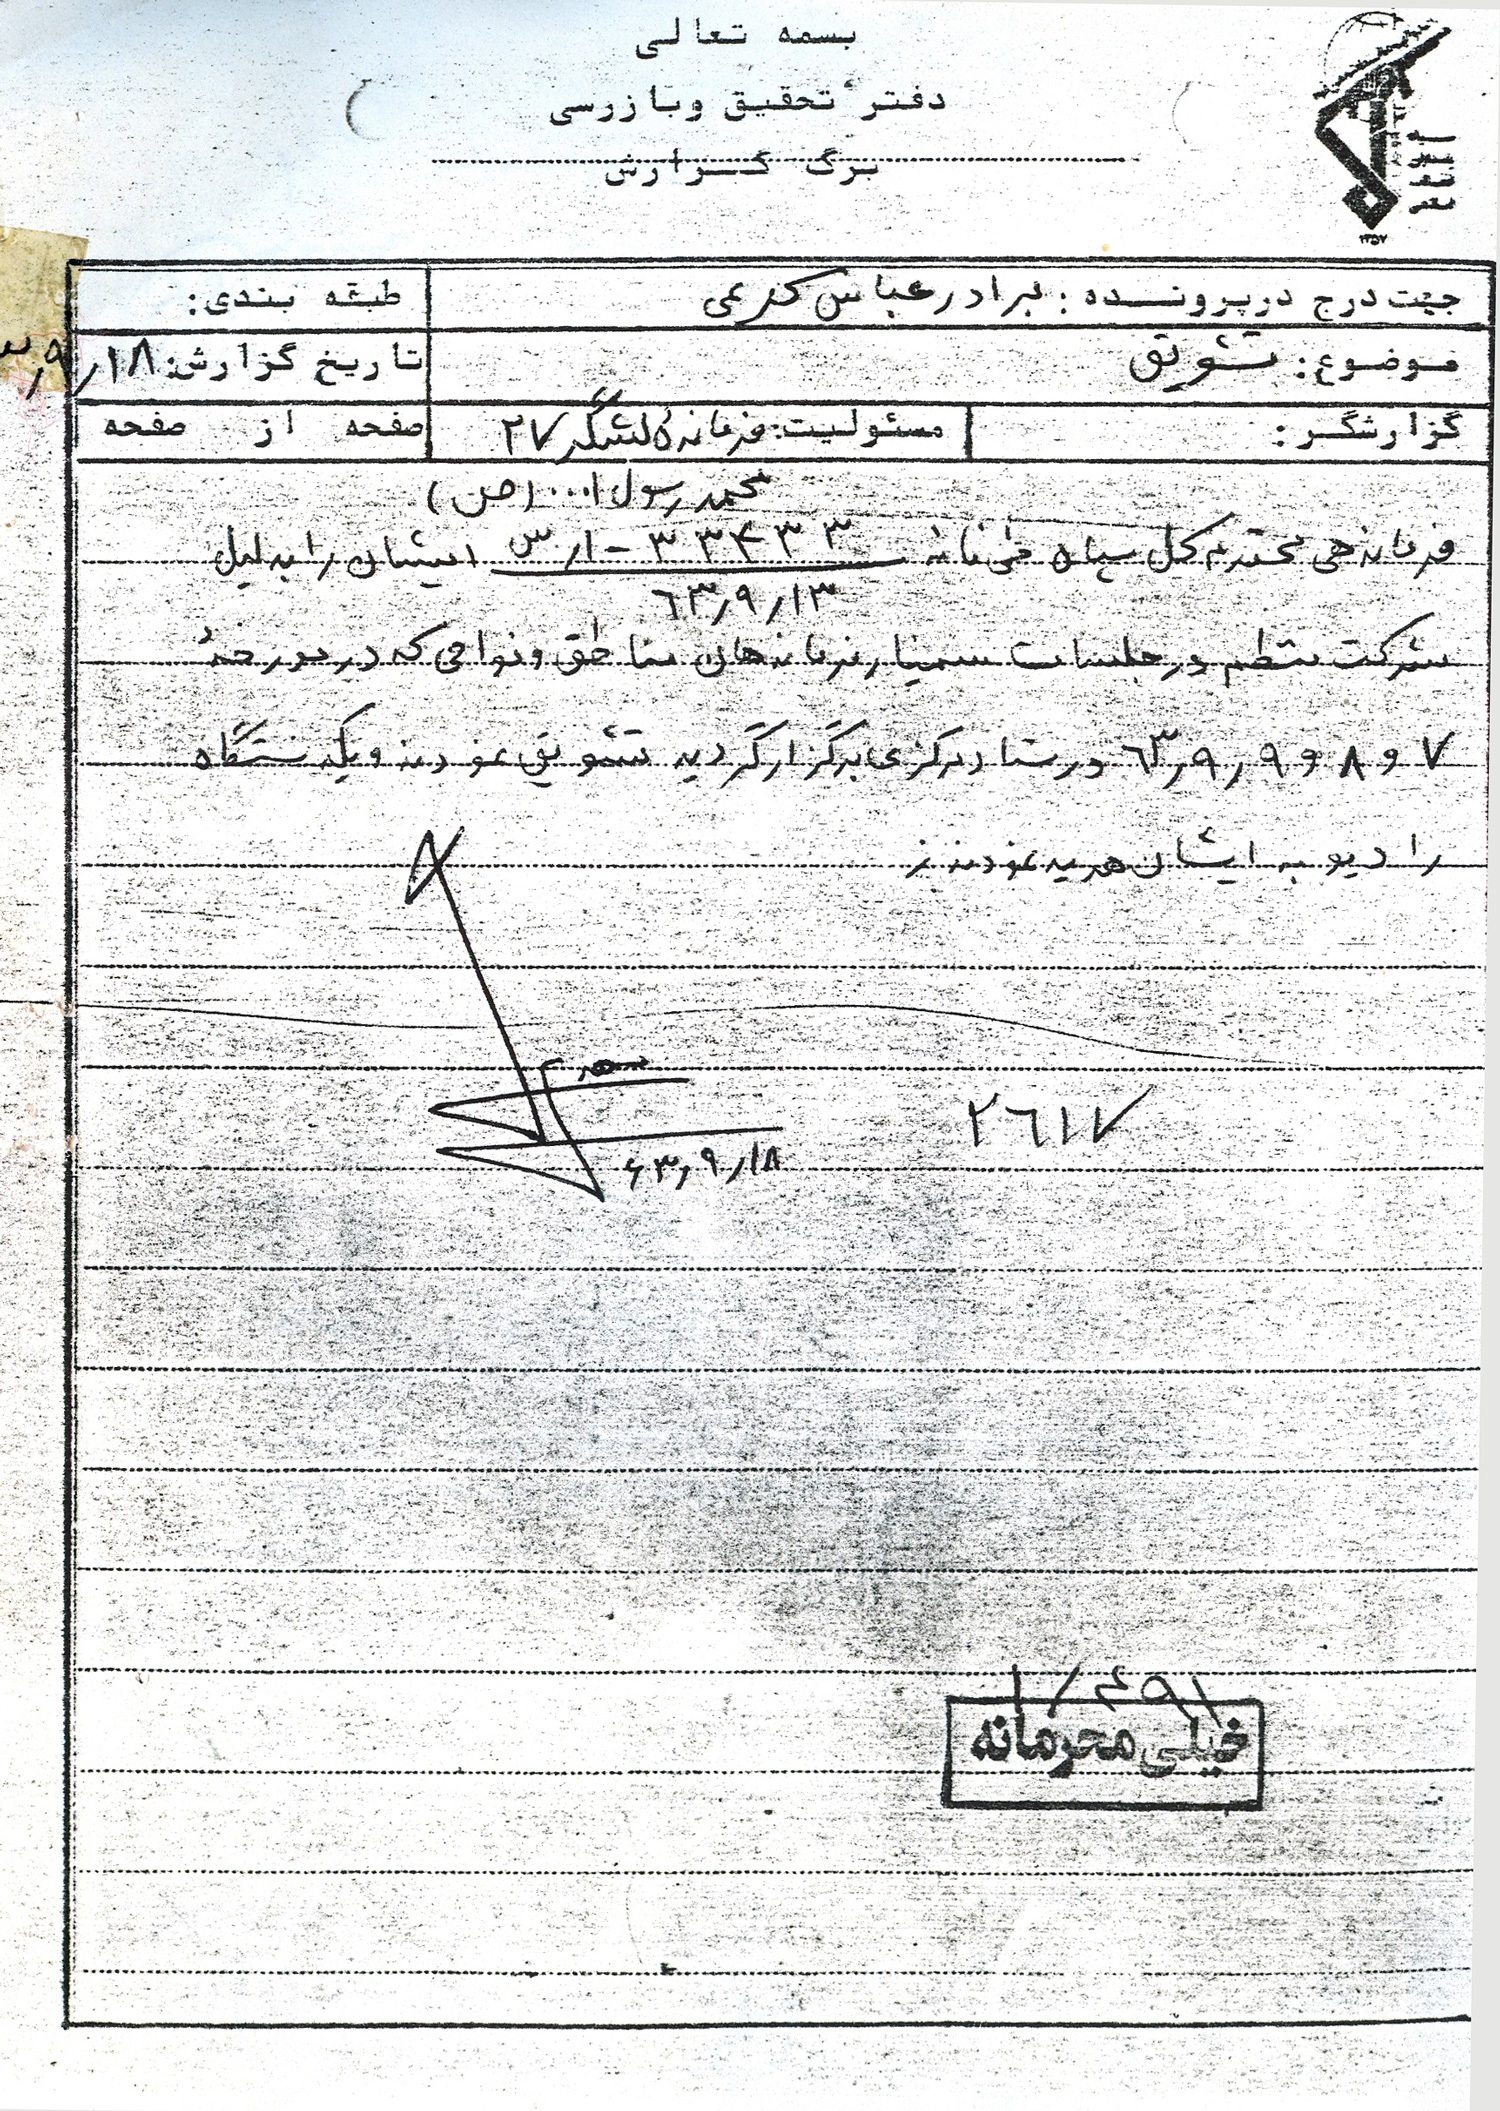 بسمه تعالی
دفتر تحقیق وبازرسی
برگ گزارش
۱۳۵۷
جهت درج درپرونده : برادر عباس کریمی
طبقه بندی:
موضوع: تشویق
تاریخ گزارش: ۳٫۹٫۱۸
گزارشگر :
مسئولیت: فرمانده لشگر ۲۷
محمد رسول ا... (ص)
صفحه از صفحه
فرماندهی محترم کل سپاه طی نامه ۳۳۴۳۳-۱٫س ایشان را بدلیل
۶۳٫۹٫۱۳
شرکت منظم در جلسات سمینار فرماندهان مناطق و نواحی که در مورخهٔ
۷ و ۸ و ۶۳٫۹٫۹ در ستاد مرکزی برگزار گردید تشویق نمودند و یکدستگاه
رادیو به ایشان هدیه نمودند
۶۳٫۹٫۱۸
۲۶۱۷
۱/۴۹۱
خیلی محرمانه